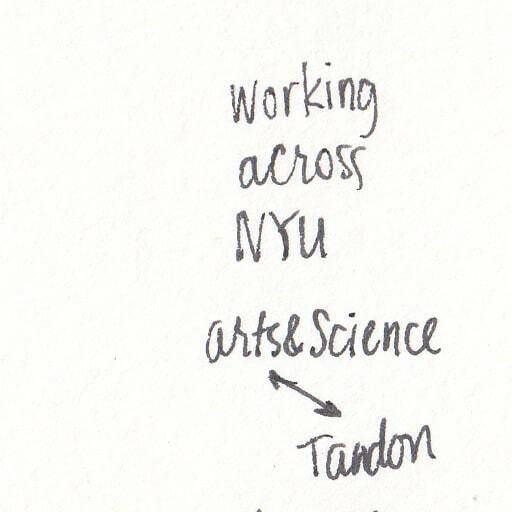 working
across
NYU
arts&Science
Tandon